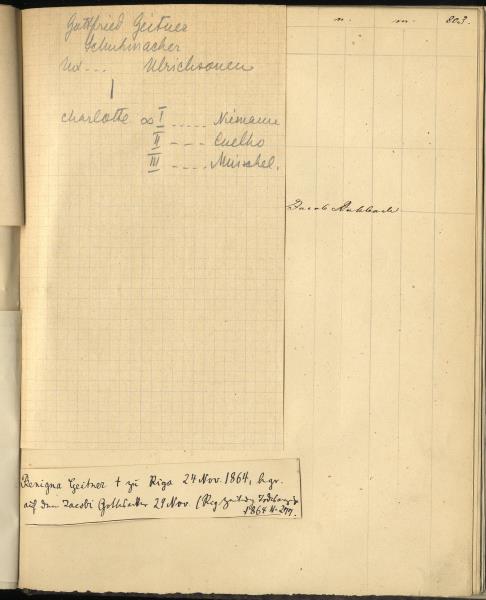 n. m. 803.
Gottfried Geitner
Schuhmacher
ux ... Ulrichsonen
|
Charlotte ∞ I ..... Niemann
II - - - - Cuelho
III - - - - Münchel.
Jacob
Benigna Geitner † zu Riga 24 Nov. 1864, begr.
auf dem Jacobi Gottesacker 29 Nov. (Rig. Zeitung
1864 N. 277.